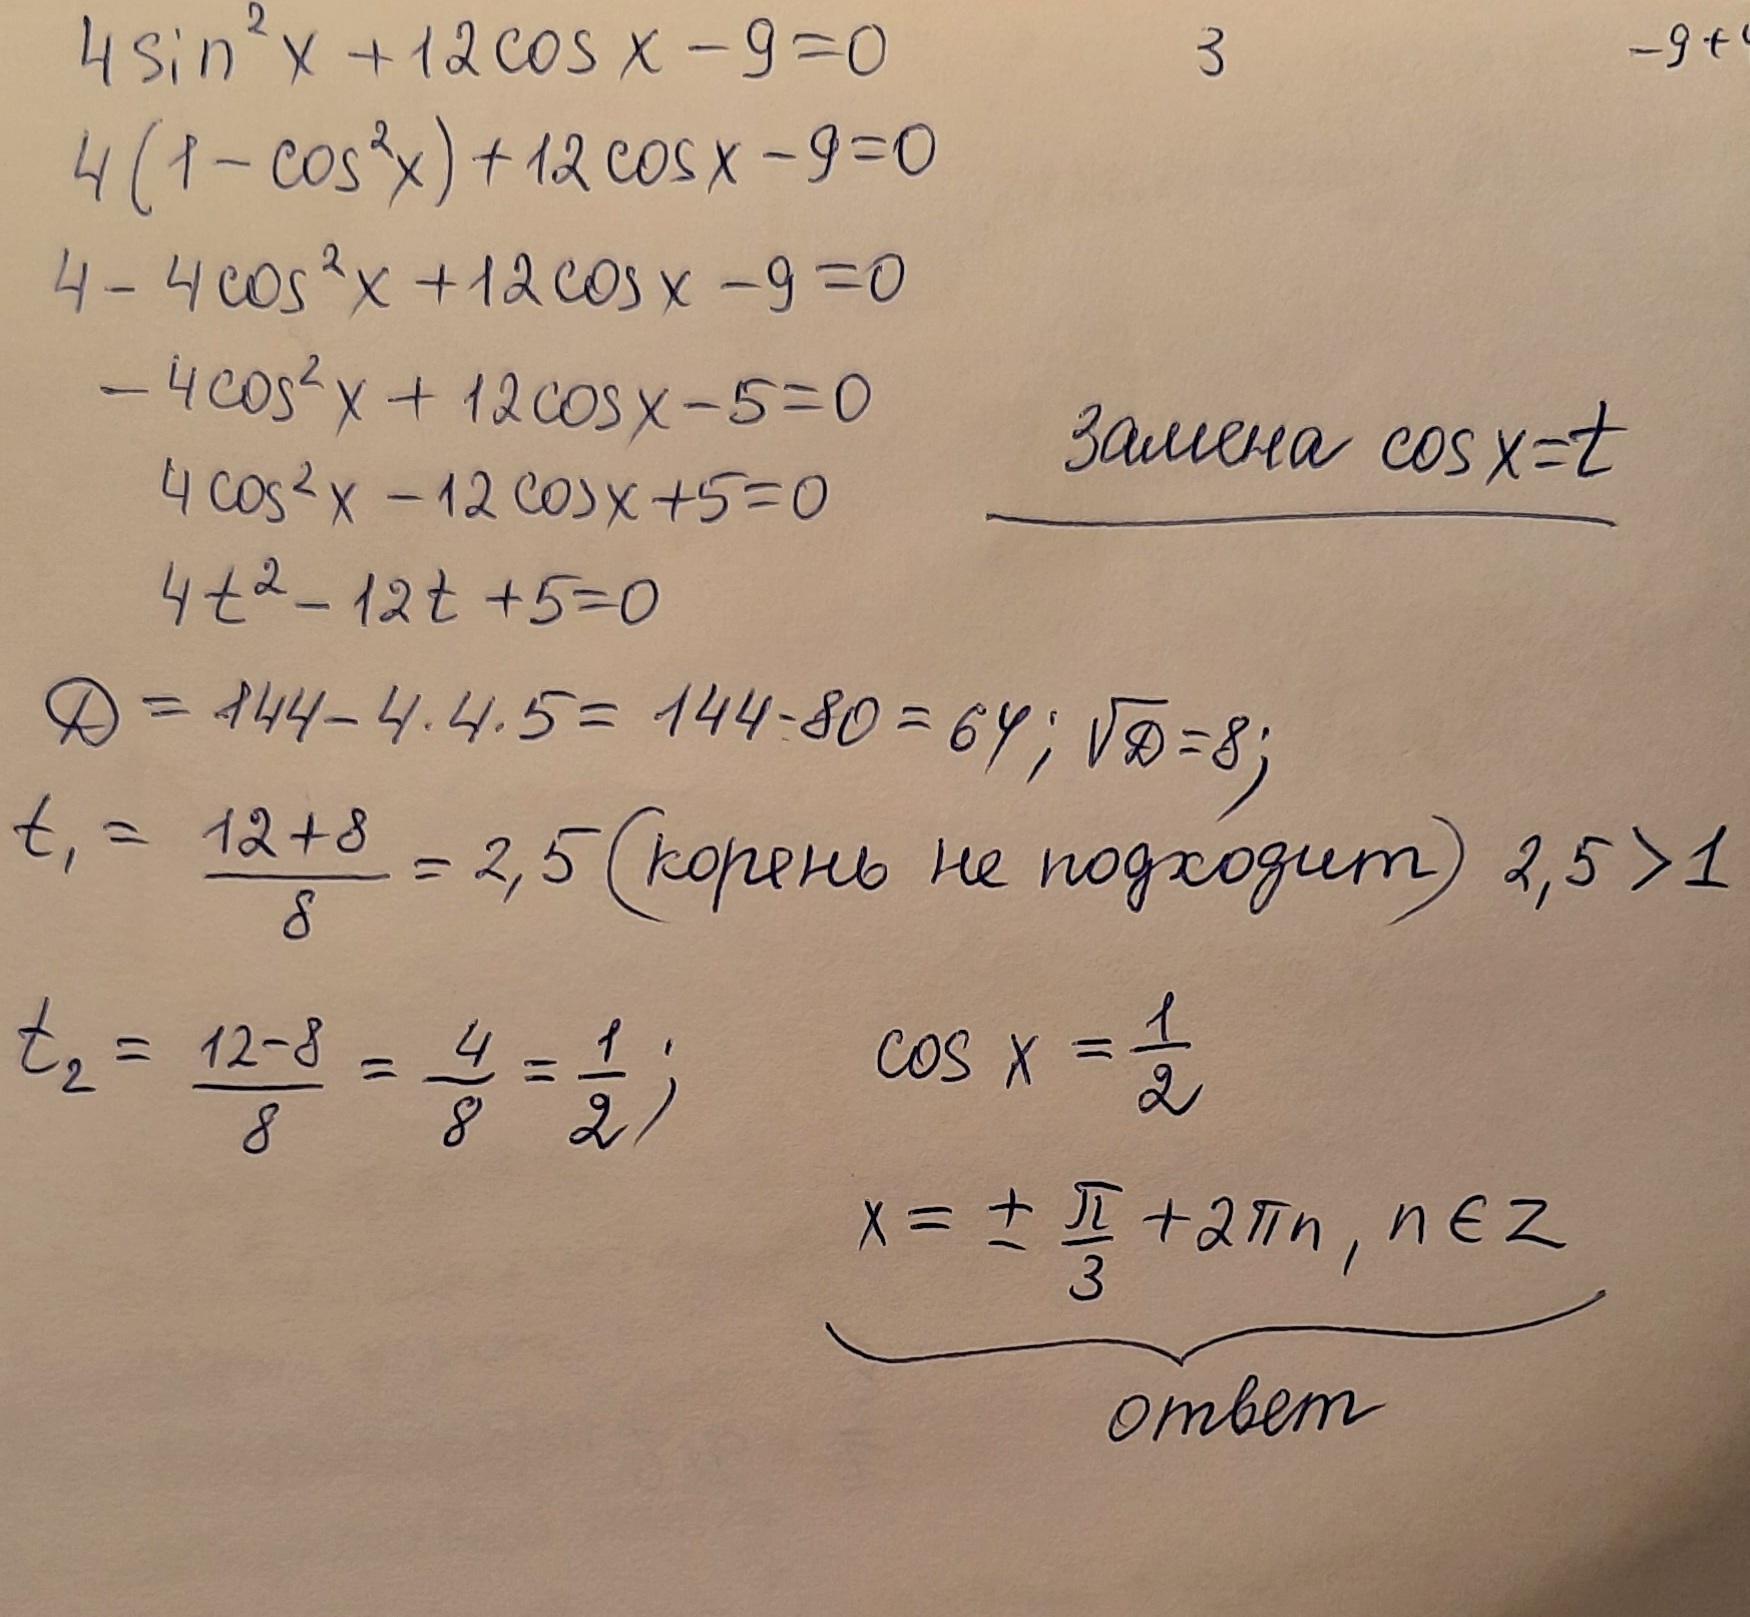 4sin²x + 12cosx - 9 = 0
3
-9+
4(1 - cos²x) + 12cosx - 9 = 0
4 - 4cos²x + 12cosx - 9 = 0
- 4cos²x + 12cosx - 5 = 0
замена cosx = t
4cos²x - 12cosx + 5 = 0
4t² - 12t + 5 = 0
D = 144 - 4·4·5 = 144 - 80 = 64; √D = 8;
t₁ = (12+8)/8 = 2,5 (корень не подходит) 2,5 > 1
t₂ = (12-8)/8 = 4/8 = 1/2; cos x = 1/2
x = ± π/3 + 2πn, n ∈ Z
ответ